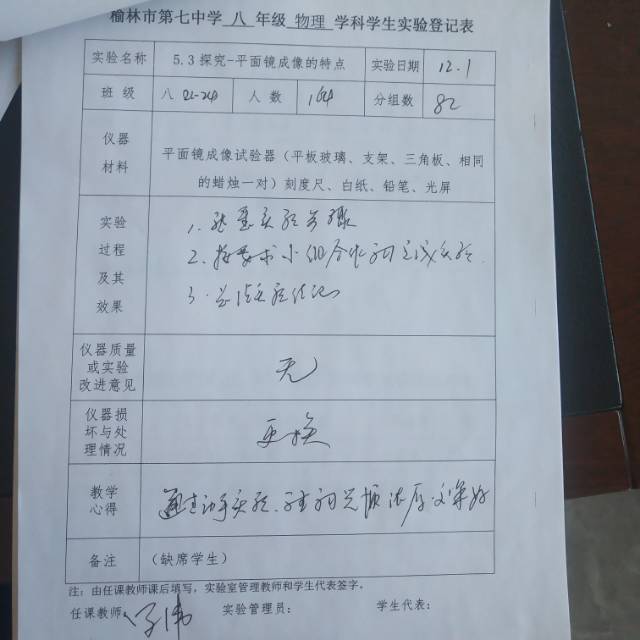 榆林市第七中学 八 年级 物理 学科学生实验登记表
实验名称 5.3 探究-平面镜成像的特点 实验日期 12.1
班 级 八 22-24 人 数 164 分组数 82
仪器
材料
平面镜成像试验器（平板玻璃、支架、三角板、相同
的蜡烛一对）刻度尺、白纸、铅笔、光屏
实验
过程
及其
效果
1. 实验步骤
2. 按要求小组合作完成实验
3. 总结实验结论
仪器质量
或实验
改进意见
无
仪器损
坏与处
理情况
更换
教学
心得
通过动手实验，学生的兴趣浓厚，效果好
备注 （缺席学生）
注：由任课教师课后填写，实验室管理教师和学生代表签字。
任课教师： 实验管理员： 学生代表：